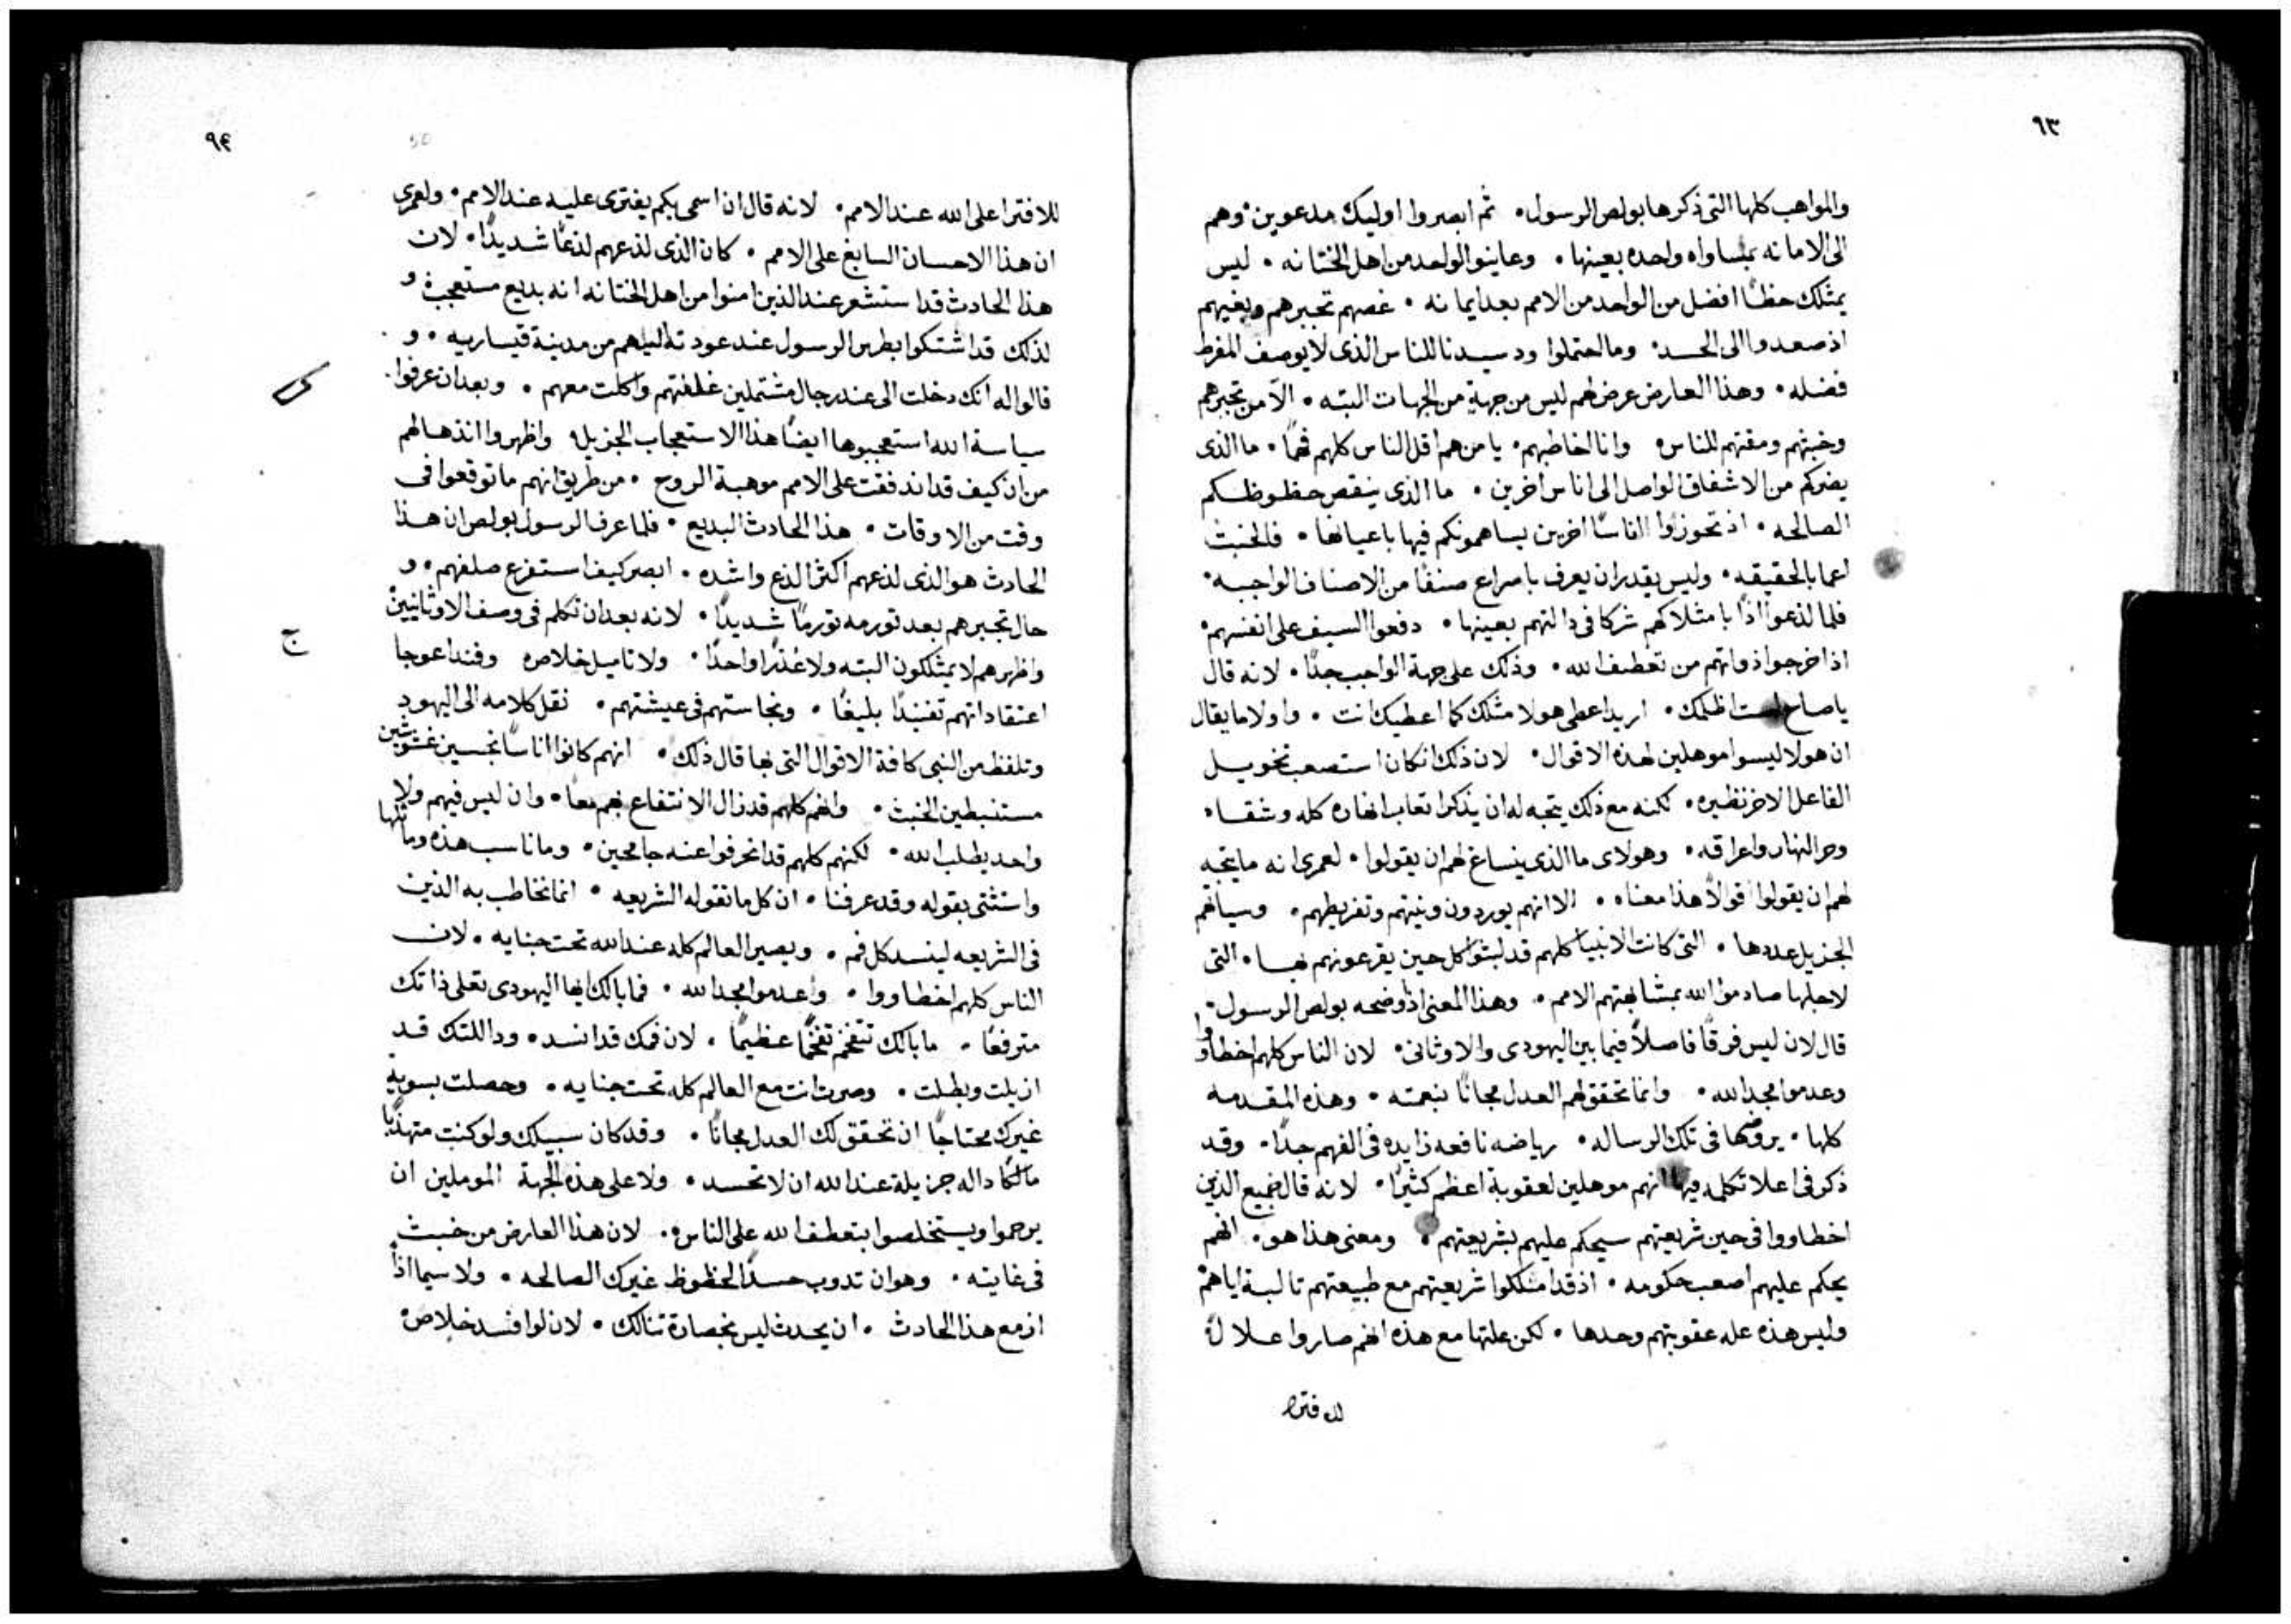 ٩٣
والمواهب كلها التى ذكرها بولص الرسول۰ ثم ابصروا اوليك مدعوين۰ وهم
الى الامانه بمساواه واحده بعينها۰ وعاينوا الواحد من اهل الختانه۰ ليس
يمتلك حظًا افضل من الواحد من الامم بعد ايمانه۰ غصهم تجبرهم وبغيهم
اذ صعدوا الى الحسد۰ وما احتملوا ود سيدنا للناس الذى لا يوصف المفرط
فضله۰ وهذا العارض عرض لهم ليس من جهةٍ من الجهات البته۰ الّا من تجبرهم
وخبثهم ومقتهم للناس۰ وانا اخاطبهم۰ يا من هم اقل الناس كلهم فهمًا۰ ما الذى
يضركم من الاشفاق الواصل الى اناس اخرين۰ ما الذى ينقص حظوظكم
الصالحه۰ اذ تحوزوا اناسًا اخرين يساهمونكم فيها باعيانها۰ فالخبث
اعما بالحقيقه۰ وليس يقدر ان يعرف باسراع صنفًا من الاصناف الواجبه۰
فلما لذعوا اذًا بامتلاكهم شركا فى دالتهم بعينها۰ دفعوا السيف على انفسهم۰
اذ اخرجوا ذواتهم من تعطف الله۰ وذلك على جهة الواجب جدًا۰ لانه قال
ياصاح لست اظلمك۰ اريد اعطى هولا مثلك كما اعطيك انت۰ واولا ما يقال
ان هولا ليسوا موهلين لهذه الاقوال۰ لان ذلك ان كان استصعب تخويل
الفاعل الاخر نظيره۰ لكنه مع ذلك يتجه له ان يذكر اتعاب نهاره كله وشقاه
وحر النهار واعراقه۰ وهولاى ما الذى ينساغ لهم ان يقولوا۰ لعمرى انه ما يتجه
لهم ان يقولوا قولًا هذا معناه۰ الا انهم يوردون ونيتهم وتفريطهم۰ وسياتهم
الجزيل عددها۰ التى كانت الانبيا كلهم قد لبثوا كل حين يقرعونهم بها۰ التى
لاجلها صادموا الله بمشابهتهم الامم۰ وهذا المعنى اذ اوضحه بولص الرسول۰
قال لان ليس فرقًا فاصلًا فيما بين اليهودى والاوثانى۰ لان الناس كلهم اخطاووا
وعدموا مجد الله۰ وانما تحقق لهم العدل مجانًا بنعمته۰ وهذه المقدمه
كلها۰ يروضها فى تلك الرساله۰ رياضه نافعه زايده فى الفهم جدًا۰ وقد
ذكر فى اعلا تكلمه فيها انهم موهلين لعقوبة اعظم كثيرًا۰ لانه قال جميع الذين
اخطاووا فى حين شريعتهم سيحكم عليهم بشريعتهم۰ ومعنى هذا هو۰ انهم
يحكم عليهم اصعب حكومه۰ اذ قد امتلكوا شريعتهم مع طبيعتهم ثالبة اياهم۰
وليس هذه عله عقوبتهم وحدها۰ لكن علتها مع هذه انهم صاروا عللًا
للافترا
٩٤
50
للافترا على الله عند الامم۰ لانه قال ان اسمى بكم يفترى عليه عند الامم۰ ولعمرى
ان هذا الاحسان السابغ على الامم۰ كان الذى لذعهم لذعًا شديدًا۰ لان
هذا الحادث قد استشعر عند الذين امنوا من اهل الختانه انه بديع مستعجب۰ و
لذلك قد اشتكوا بطرس الرسول عند عودته اليهم من مدينة قيساريه۰ و
قالوا له انك دخلت الى عند رجال مشتملين غلفتهم واكلت معهم۰ وبعد ان عرفوا
سياسة الله استعجبوها ايضًا هذا الاستعجاب الجزيل۰ واظهروا انذهالهم
من ان كيف قد اندفقت على الامم موهبة الروح۰ من طريق انهم ما توقعوا فى
وقت من الاوقات۰ هذا الحادث البديع۰ فلما عرف الرسول بولص ان هذا
الحادث هو الذى لذعهم اكثر الذع واشده۰ ابصر كيف استفزع صلفهم۰ و
حال تجبرهم بعد تورمه تورمًا شديدًا۰ لانه بعد ان تكلم فى وصف الاوثانيين
ج
واظهرهم لا يمتلكون البته ولا عذرًا واحدًا۰ ولا تاميل خلاص۰ وفند اعوجا
اعتقاداتهم تفنيدًا بليغًا۰ ونجاستهم فى عيشتهم۰ نقل كلامه الى اليهود
وتلفظ من النبى كافة الاقوال التى بها قال ذلك۰ انهم كانوا اناسًا نجسين غشوشين
مستنبطين الخبث۰ وانهم كلهم قد زال الانتفاع بهم معًا۰ وان ليس فيهم ولا
واحد يطلب الله۰ لكنهم كلهم قد انحرفوا عنه جامحين۰ وما ناسب هذه وماثلها
واستثنى بقوله وقد عرفنا۰ ان كل ما تقوله الشريعه۰ انما تخاطب به الذين
فى الشريعه لينسد كل فم۰ ويصير العالم كله عند الله تحت جنايه۰ لان
الناس كلهم اخطاووا۰ واعدموا مجد الله۰ فما بالك ايها اليهودى تعلى ذاتك
مترفعًا۰ ما بالك تتفخم تفخمًا عظيمًا۰ لان فمك قد انسد۰ ودالتك قد
ازيلت وبطلت۰ وصرت انت مع العالم كله تحت جنايه۰ وحصلت بسوية
غيرك محتاجًا ان تحقق لك العدل مجانًا۰ وقد كان سبيلك ولو كنت متهذبًا
مالكًا داله جزيلة عند الله ان لا تحسد۰ ولا على هذه الجهة الموملين ان
يرحموا ويستخلصوا بتعطف الله على الناس۰ لان هذا العارض من خبث
فى غايته۰ وهو ان تدوب حسدًا لحظوظ غيرك الصالحه۰ ولا سيما اذا
ازمع هذا الحادث۰ ان يحدث ليس بخسارة تنالك۰ لان لو افسد خلاص